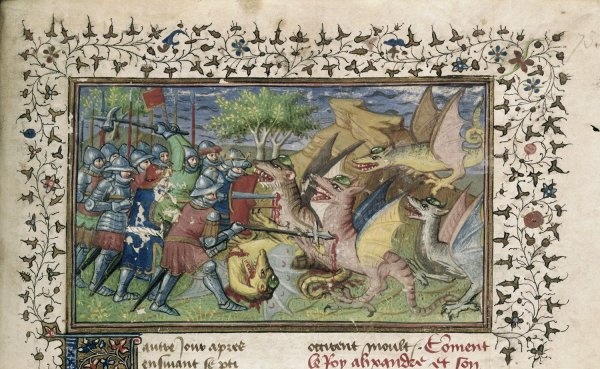 autre jour apres
ensuiuant se pti
occirent moult. Coment
le Roy alixandre et son